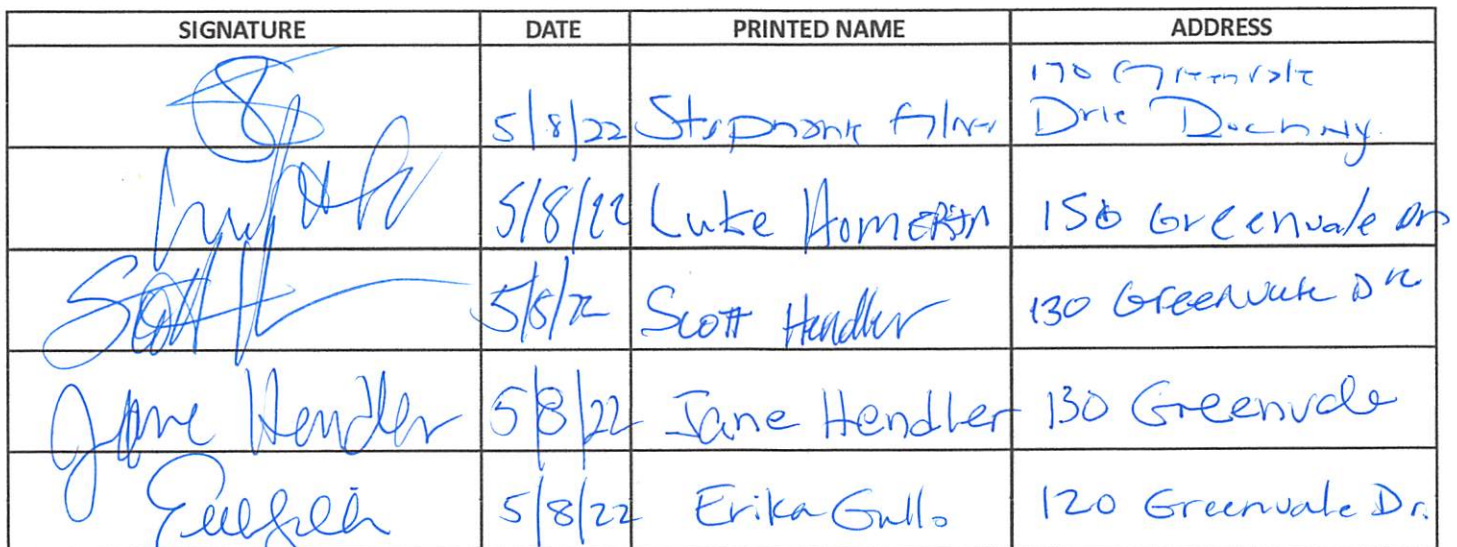 SIGNATURE DATE PRINTED NAME ADDRESS
170 Greenvale
5/8/22 Stephanie Drive
5/8/22 Luke Homerin 150 Greenvale Dr
Scott H 5/8/22 Scott Hendler 130 Greenvale Dr
Jane Hendler 5/8/22 Jane Hendler 130 Greenvale
5/8/22 Erika Gullo 120 Greenvale Dr.